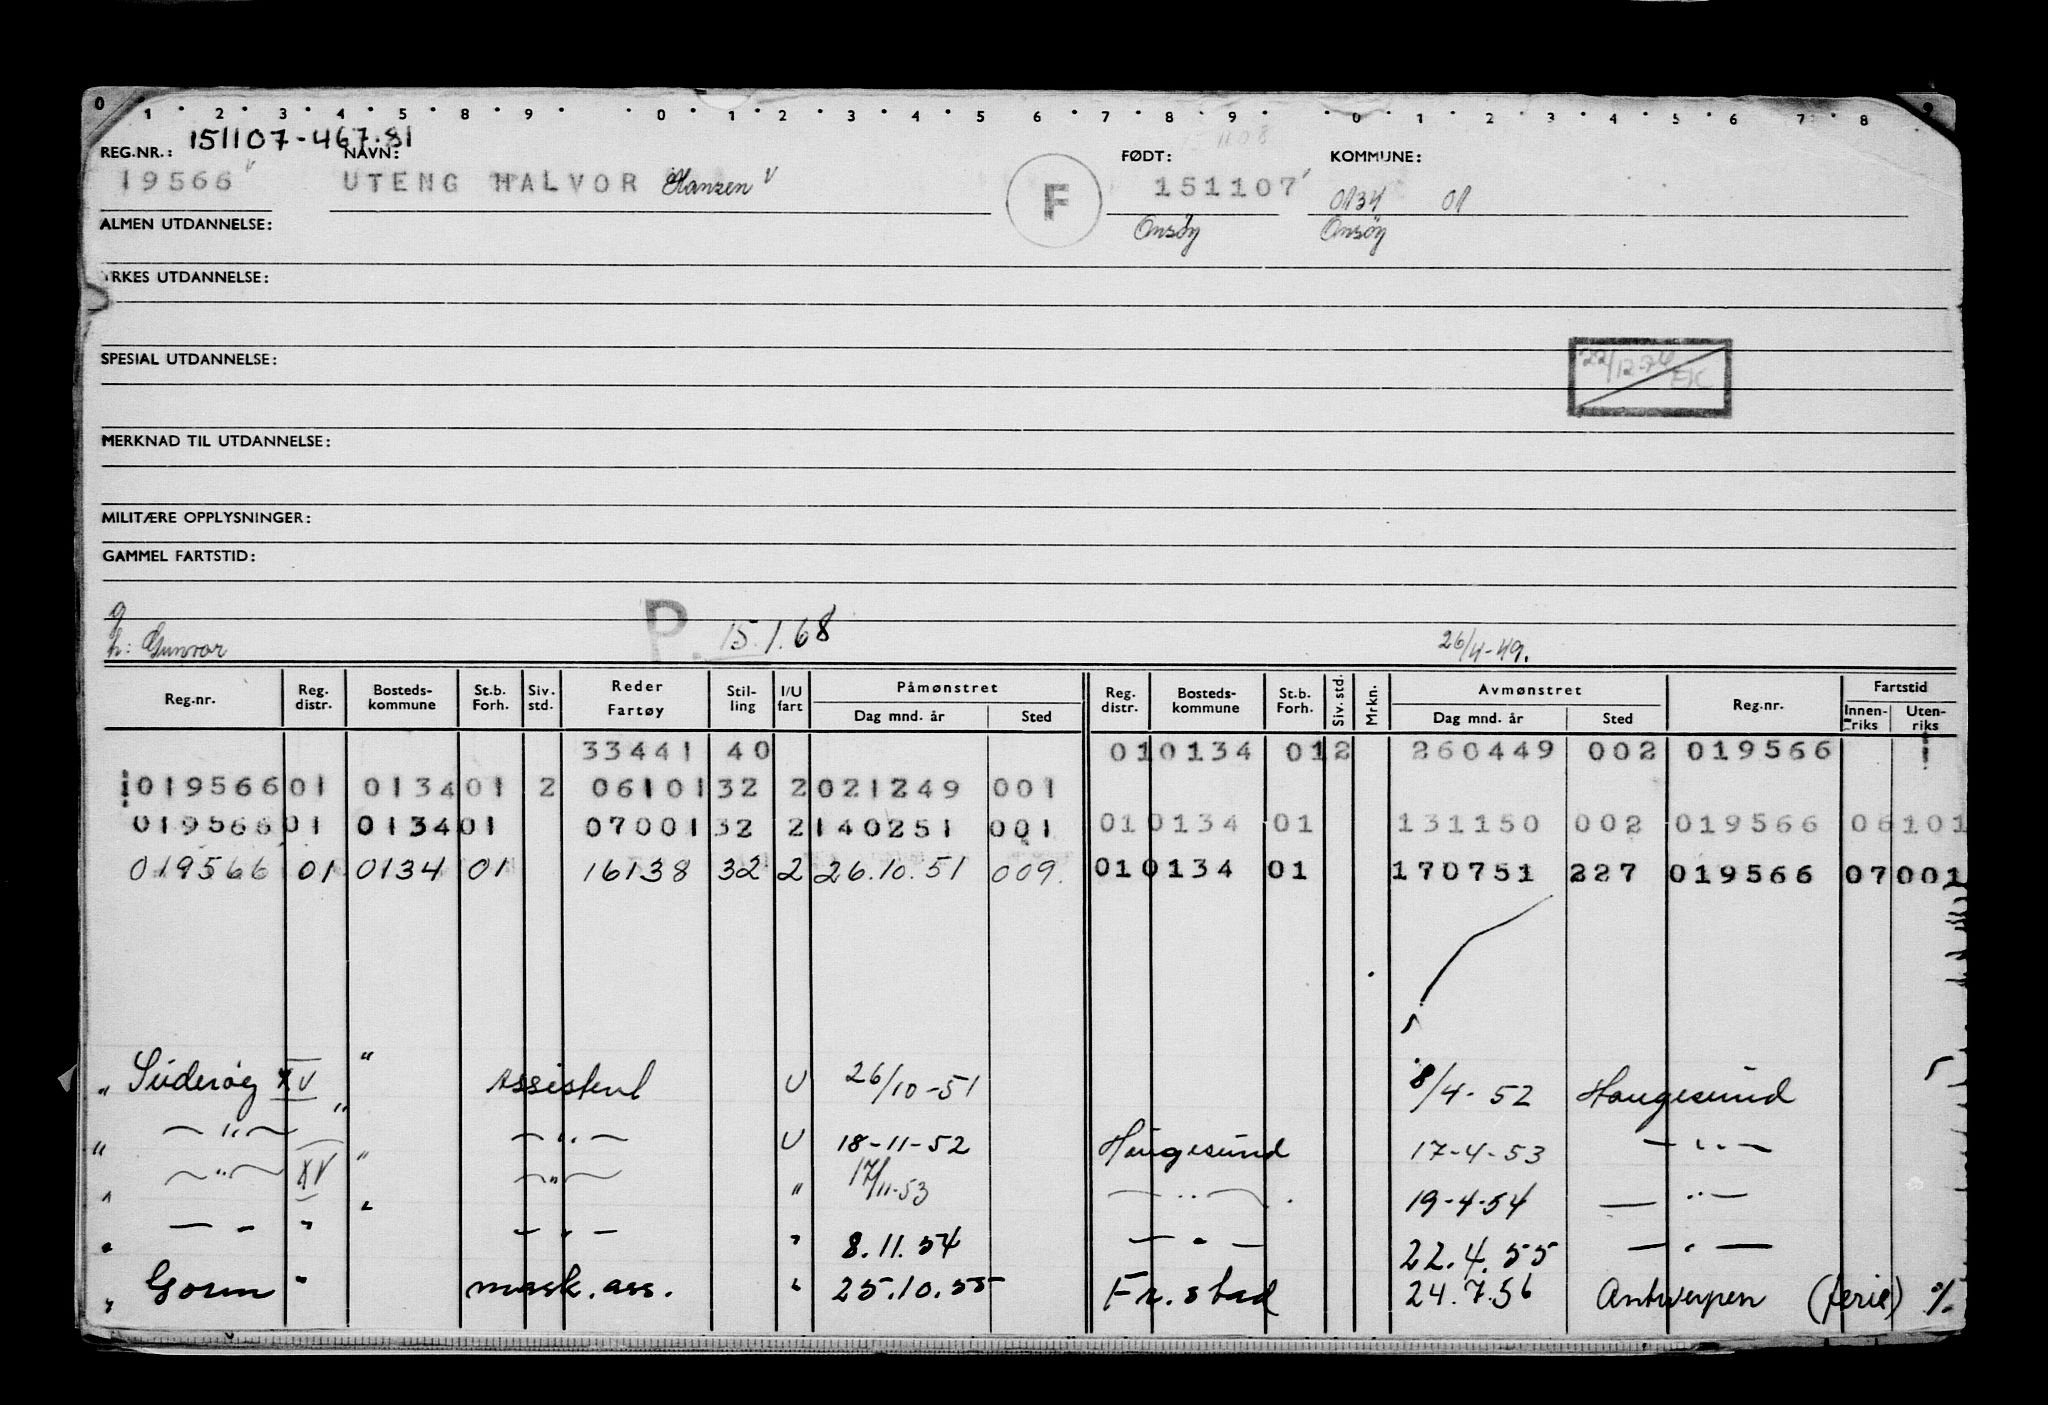 0 1 2 3 4 5 6 7 8 9 0 1 2 3 4 5 6 7 8 9 0 1 2 3 4 5 6 7 8 9
151107-467.81
REG.NR.: NAVN: FØDT: KOMMUNE:
19566 UTENG HALVOR Hansen F 151107 0134 01
ALMEN UTDANNELSE: Onsøy Onsøy
YRKES UTDANNELSE:
SPESIAL UTDANNELSE: 22/12-74 EK
MERKNAD TIL UTDANNELSE:
MILITÆRE OPPLYSNINGER:
GAMMEL FARTSTID:
g
h: Gunvor P. 15.1.68 26/4-49.
Reg.nr. Reg. distr. Bosteds-kommune St.b. Forh. Siv. std. Reder Fartøy Stil-ling I/U fart Påmønstret Dag mnd. år Sted Reg. distr. Bosteds-kommune St.b. Forh. Siv. std. Mrkn. Avmønstret Dag mnd. år Sted Reg.nr. Fartstid Innen-riks Uten-riks
33441 40 01 0134 01 2 260449 002 019566
019566 01 0134 01 2 06101 32 2 021249 001
019566 01 0134 01 07001 32 2 140251 001 01 0134 01 131150 002 019566 06101
019566 01 0134 01 16138 32 2 26.10.51 009. 01 0134 01 170751 227 019566 07001
" Süderøy XV " Assistent U 26/10-51 8/4-52 Haugesund
" — " — " — " — U 18-11-52 Haugesund 17-4-53 — " —
" — " — XV " — " — " 17/11-53 — " — 19-4-54 — " —
" — " — " " — " — " 8.11.54 — " — 22.4.55 — " —
" Gorm " mask. ass. " 25.10.55 Fr.stad 24.7.56 Antwerpen (ferie) %